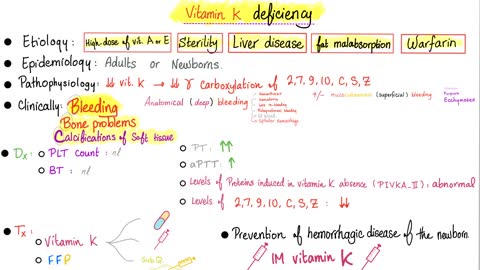 Vitamin K deficiency
• Etiology: High-dose of vit. A or E Sterility Liver disease fat malabsorption Warfarin
• Epidemiology: Adults or Newborns.
• Pathophysiology: ↓↓ vit. K → ↓↓ γ Carboxylation of 2,7,9,10, C, S, Z
• Clinically: Bleeding Anatomical (deep) bleeding +/- mucocutaneous (superficial) bleeding
Ecchymoses
Bone problems
Calcifications of Soft tissue
• Dx: ○ PLT count: nl
○ BT: nl
○ PT: ↑↑
○ aPTT: ↑
○ Levels of Proteins induced in vitamin K absence (PIVKA-II): abnormal
○ Levels of 2,7,9,10, C, S, Z: ↓↓
• Tx:
○ Vitamin K
SubQ
○ FFP
• Prevention of hemorrhagic disease of the newborn.
IM vitamin K